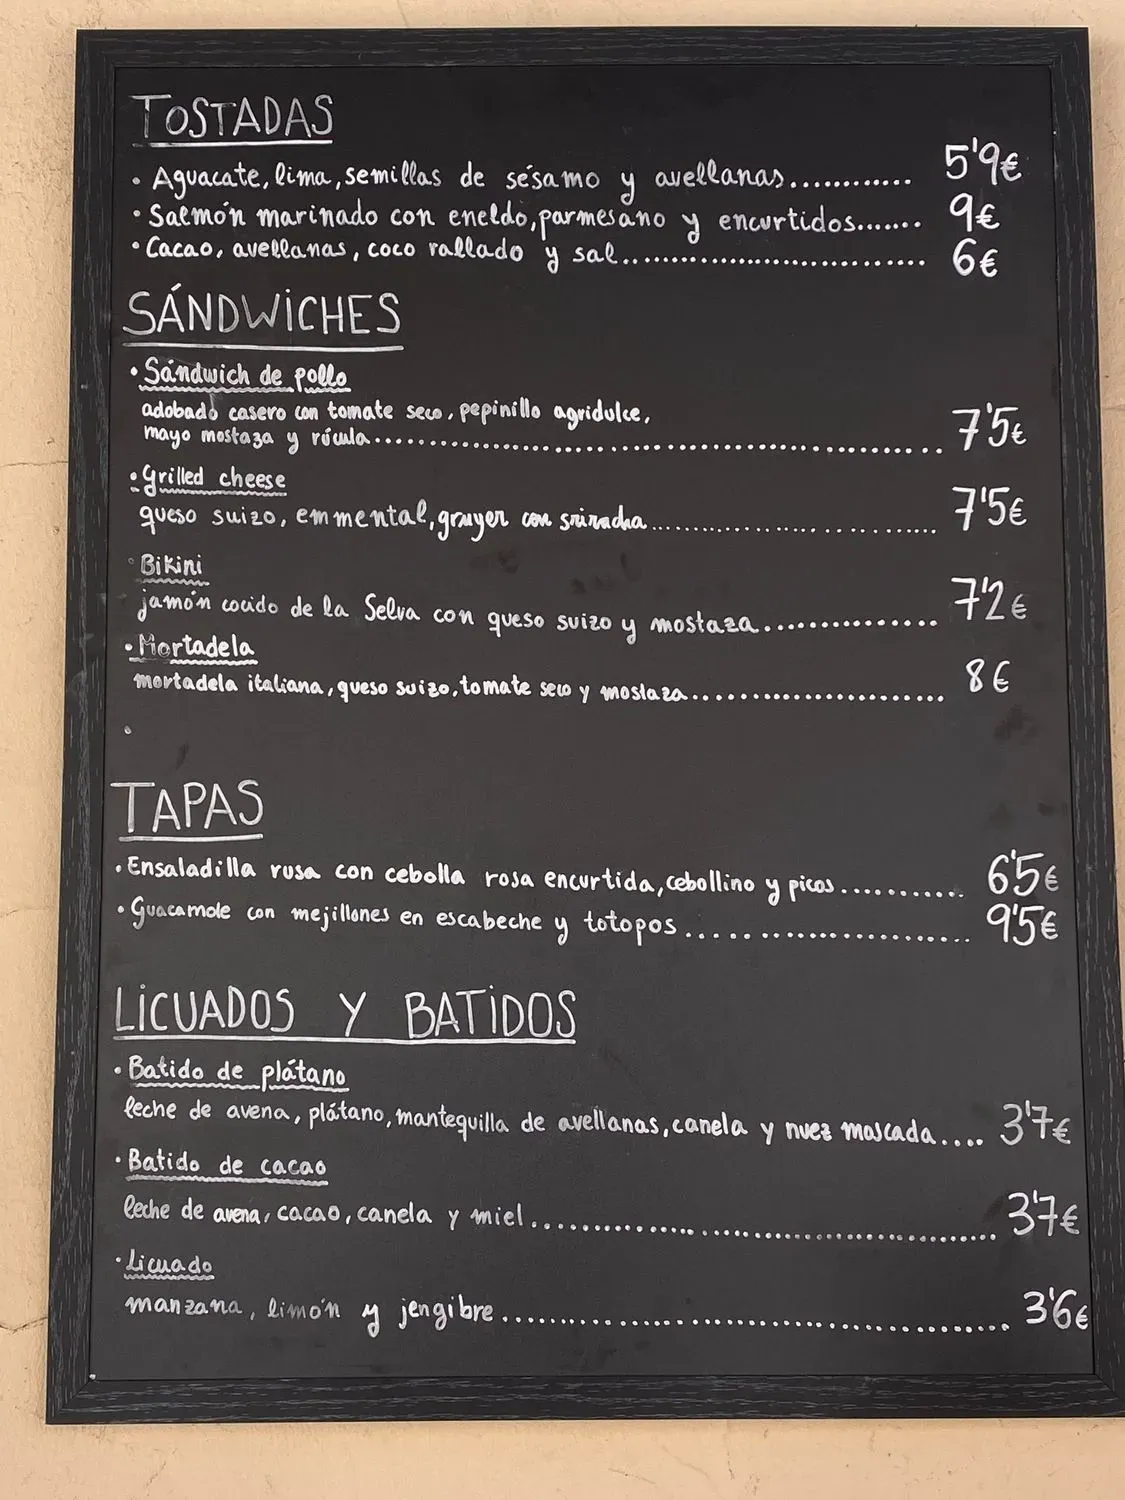 TOSTADAS
• Aguacate, lima, semillas de sésamo y avellanas............ 5'9€
• Salmón marinado con eneldo, parmesano y encurtidos....... 9€
• Cacao, avellanas, coco rallado y sal.............................. 6€
SÁNDWICHES
• Sándwich de pollo
adobado casero con tomate seco, pepinillo agridulce,
mayo mostaza y rúcula.................................................. 7'5€
• Grilled cheese
queso suizo, emmental, gruyer con sriracha........................ 7'5€
• Bikini
jamón cocido de la Selva con queso suizo y mostaza............... 7'2€
• Mortadela
mortadela italiana, queso suizo, tomate seco y mostaza...................... 8€
•
TAPAS
• Ensaladilla rusa con cebolla rosa encurtida, cebollino y picos........... 6'5€
• Guacamole con mejillones en escabeche y totopos...................... 9'5€
LICUADOS Y BATIDOS
• Batido de plátano
leche de avena, plátano, mantequilla de avellanas, canela y nuez moscada.... 3'7€
• Batido de cacao
leche de avena, cacao, canela y miel........................................ 3'7€
• Licuado
manzana, limón y jengibre.............................................. 3'6€